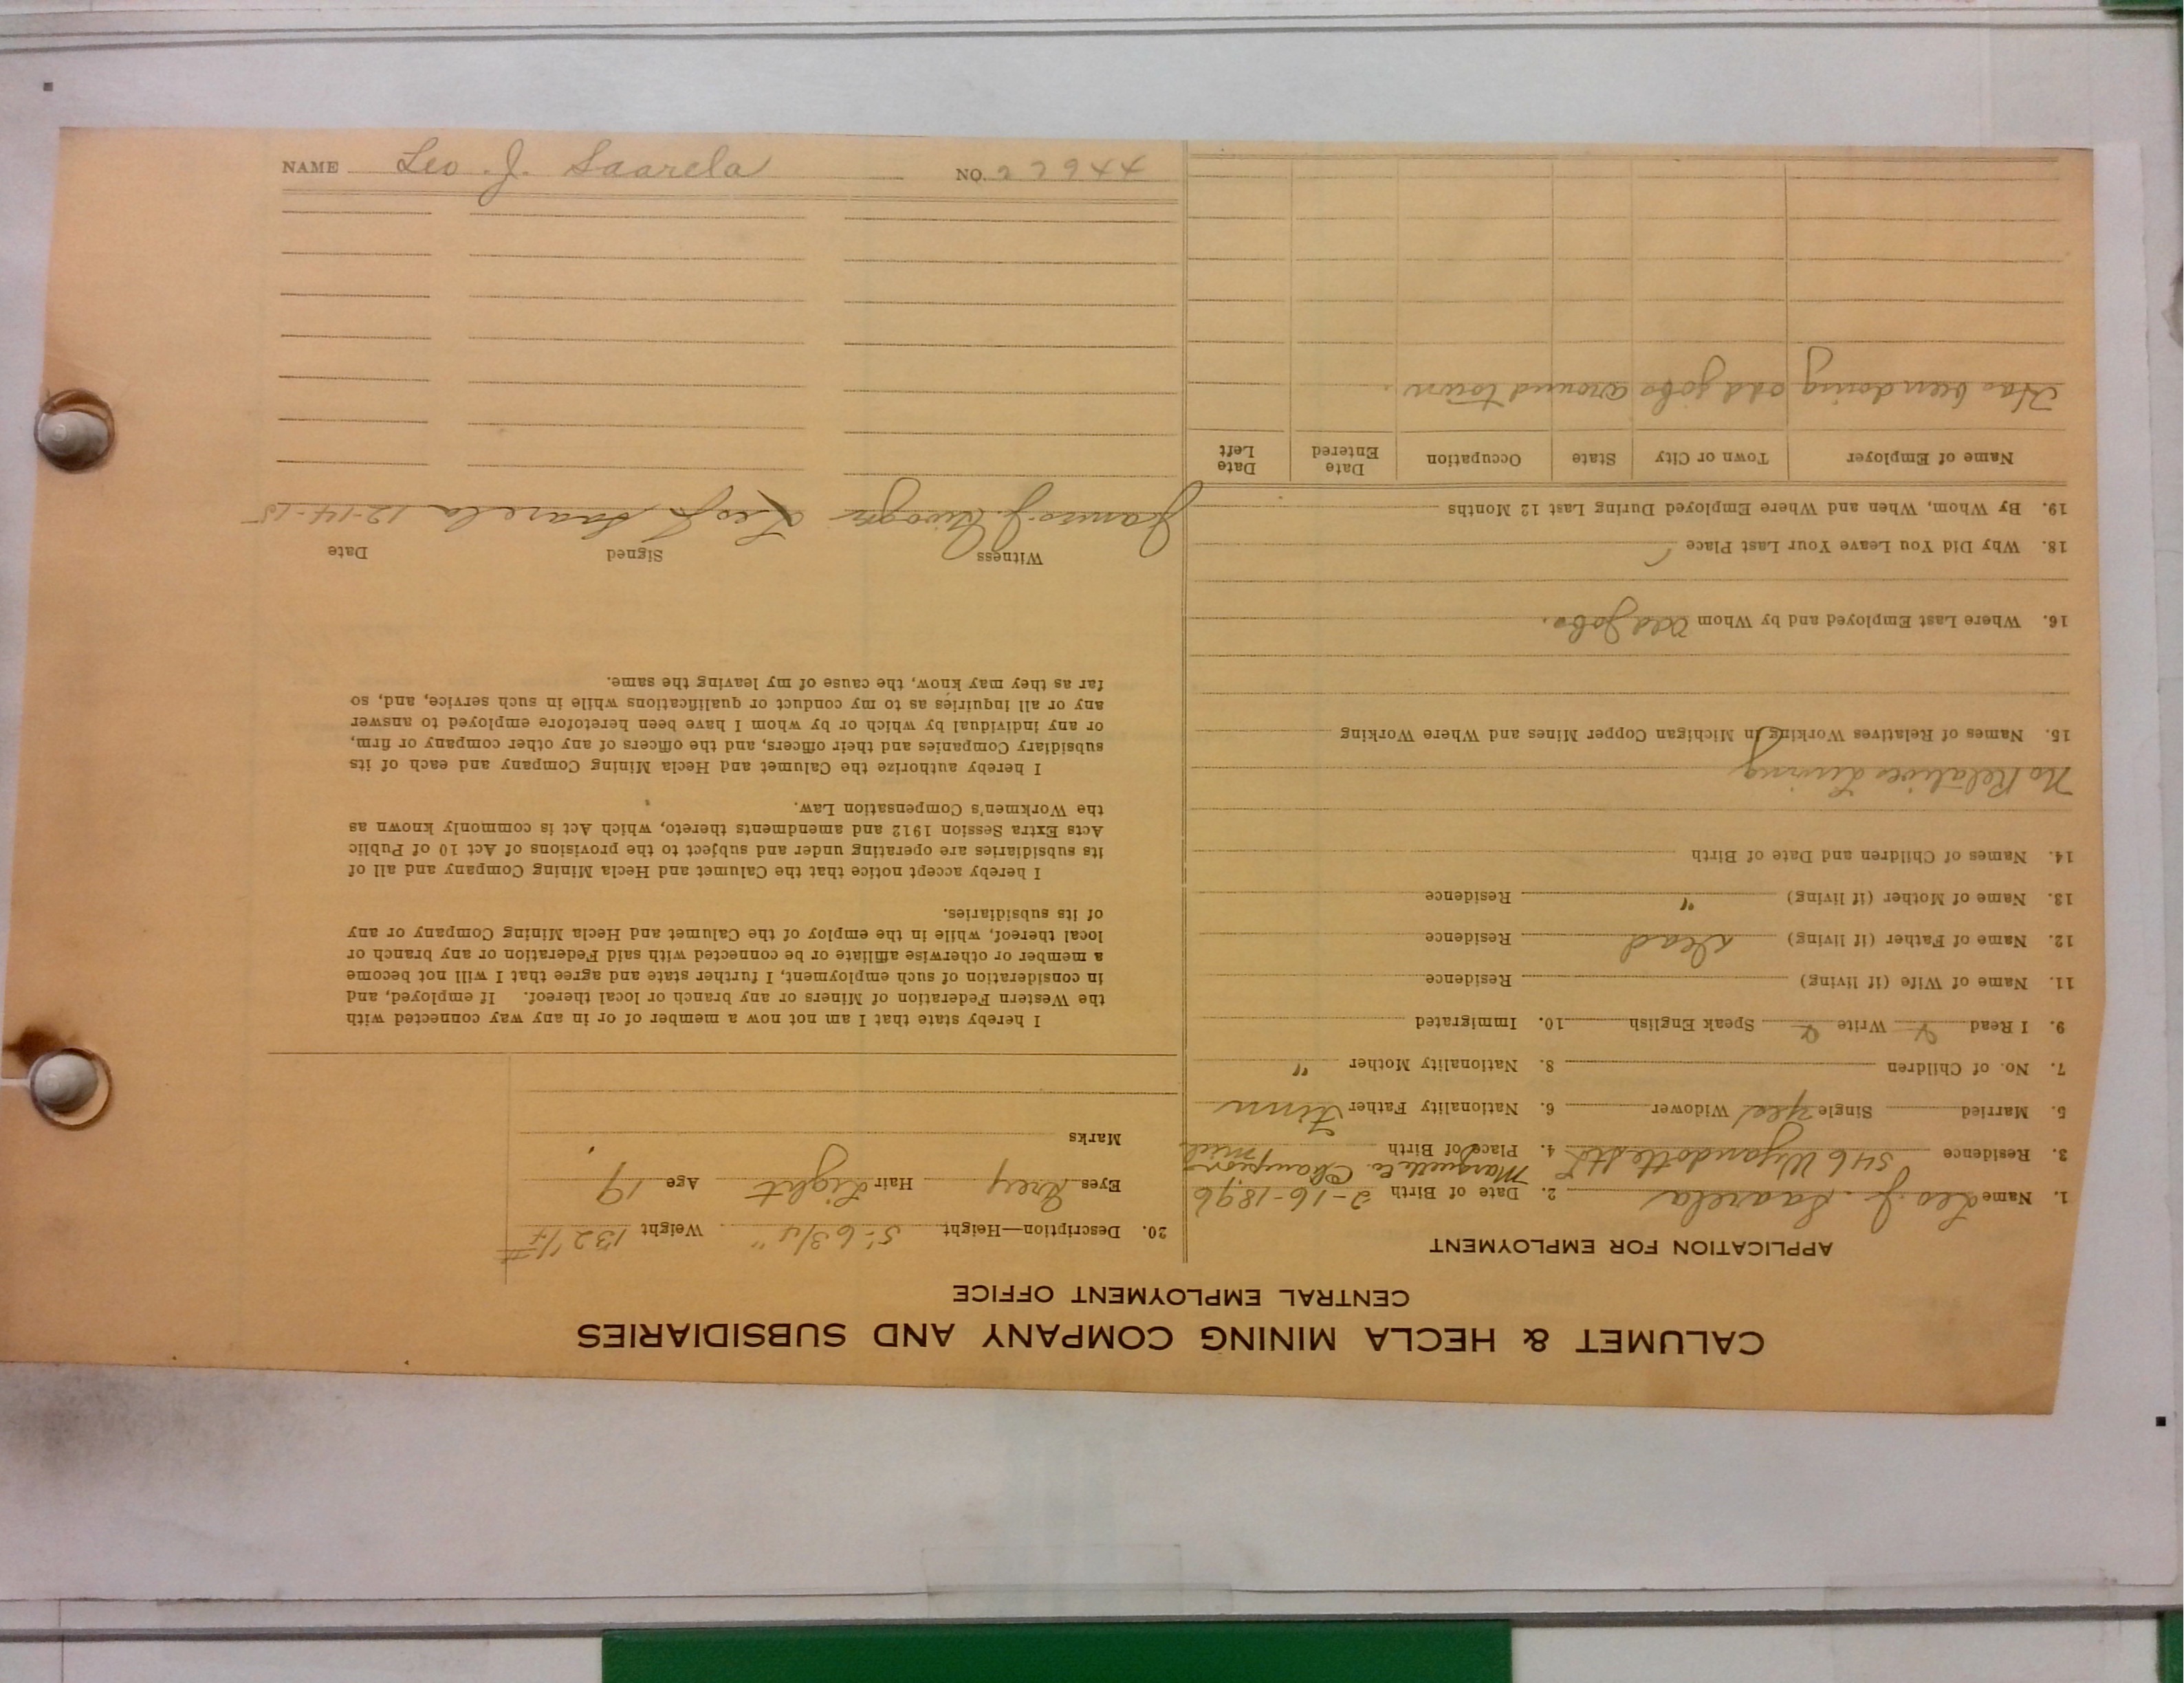 CALUMET & HECLA MINING COMPANY AND SUBSIDIARIES
CENTRAL EMPLOYMENT OFFICE
APPLICATION FOR EMPLOYMENT
1. Name Leo J. Saarela 2. Date of Birth 2-16-1896
Marquette Co. Champion
3. Residence 546 Wyandotte St 4. Place of Birth Mich
5. Married Single Yes Widower 6. Nationality Father Finn
7. No. of Children 8. Nationality Mother "
9. I Read Y Write Y Speak English 10. Immigrated
11. Name of Wife (if living) Residence
12. Name of Father (if living) Dead Residence
13. Name of Mother (if living) " Residence
14. Names of Children and Date of Birth
No Relatives Living
15. Names of Relatives Working in Michigan Copper Mines and Where Working
16. Where Last Employed and by Whom Odd Jobs.
18. Why Did You Leave Your Last Place
19. By Whom, When and Where Employed During Last 12 Months
Name of Employer Town or City State Occupation Date Entered Date Left
Has been doing odd jobs around town.
20. Description—Height 5' 6 3/4" Weight 132 1/2 #
Eyes Grey Hair Light Age 19
Marks
I hereby state that I am not now a member of or in any way connected with
the Western Federation of Miners or any branch or local thereof. If employed, and
in consideration of such employment, I further state and agree that I will not become
a member or otherwise affiliate or be connected with said Federation or any branch or
local thereof, while in the employ of the Calumet and Hecla Mining Company or any
of its subsidiaries.
I hereby accept notice that the Calumet and Hecla Mining Company and all of
its subsidiaries are operating under and subject to the provisions of Act 10 of Public
Acts Extra Session 1912 and amendments thereto, which Act is commonly known as
the Workmen's Compensation Law.
I hereby authorize the Calumet and Hecla Mining Company and each of its
subsidiary Companies and their officers, and the officers of any other company or firm,
or any individual by which or by whom I have been heretofore employed to answer
any or all inquiries as to my conduct or qualifications while in such service, and, so
far as they may know, the cause of my leaving the same.
Witness Signed Date
James J. Leo J. Saarela 12-14-15
NAME Leo J. Saarela NO. 22944